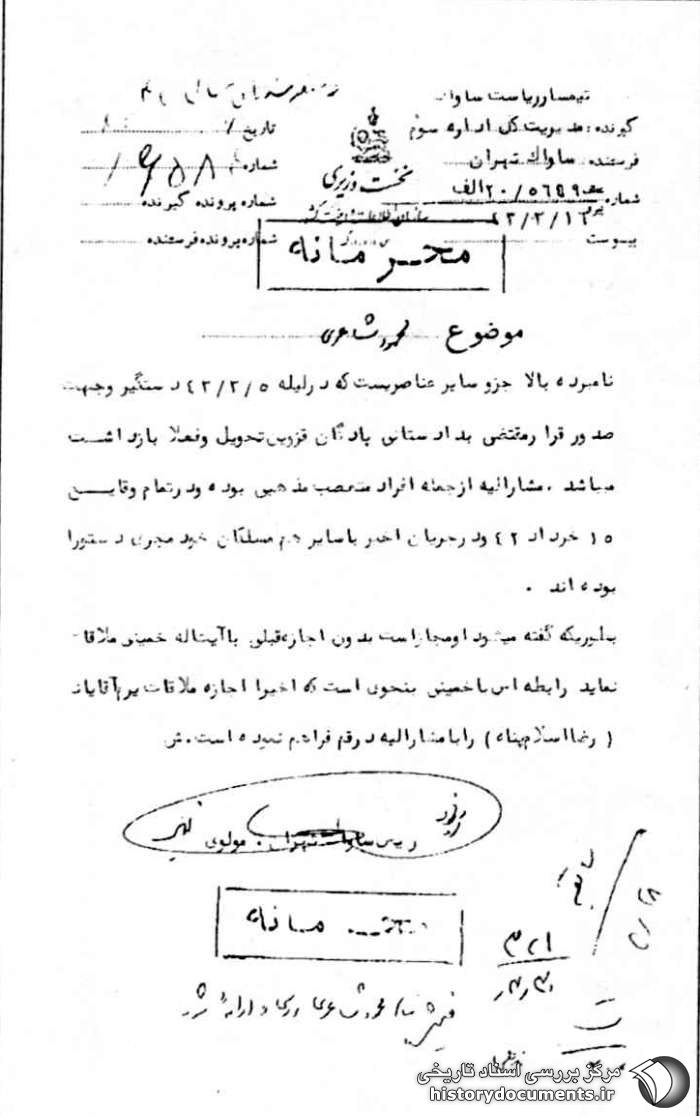 تیمسار ریاست ساواك
گیرنده : مدیریت کل اداره سوم
فرستنده : ساواك تهران
شماره ۲۰/۵٦۵۹ الف
۴۲/۲/۱٦
پیوست
نخست وزیری
سازمان اطلاعات و امنیت کشور
تاریخ
شماره
شماره پرونده گیرنده
شماره پرونده فرستنده
محرمانه
موضوع محمود شاعری
نامبرده بالا جزو سایر عناصریست که در لیله ۴۲/۲/۵ دستگیر وجهت
صدور قرار مقتضی بدادستانی پادگان قزوین تحویل وفعلا بازداشت
میباشد . مشارالیه ازجمله افراد متعصب مذهبی بوده ودرتمام وقایع
۱۵ خرداد ۴۲ ودرجریان اخیر باسایر هم مسلکان خود مجری دستورا
بوده اند .
بطوریکه گفته میشود اومجازاست بدون اجازه قبلی باآیتاله خمینی ملاقات
نماید رابطه اش باخمینی بنحوی است که اخیرا اجازه ملاقات آقایان
( رضا اسلام پناه ) رابامشارالیه درقم فراهم نموده است .ش
رییس ساواك تهران . مولوی
محرمانه
محمود شاعری
مرکز بررسی اسناد تاریخی
historydocuments.ir